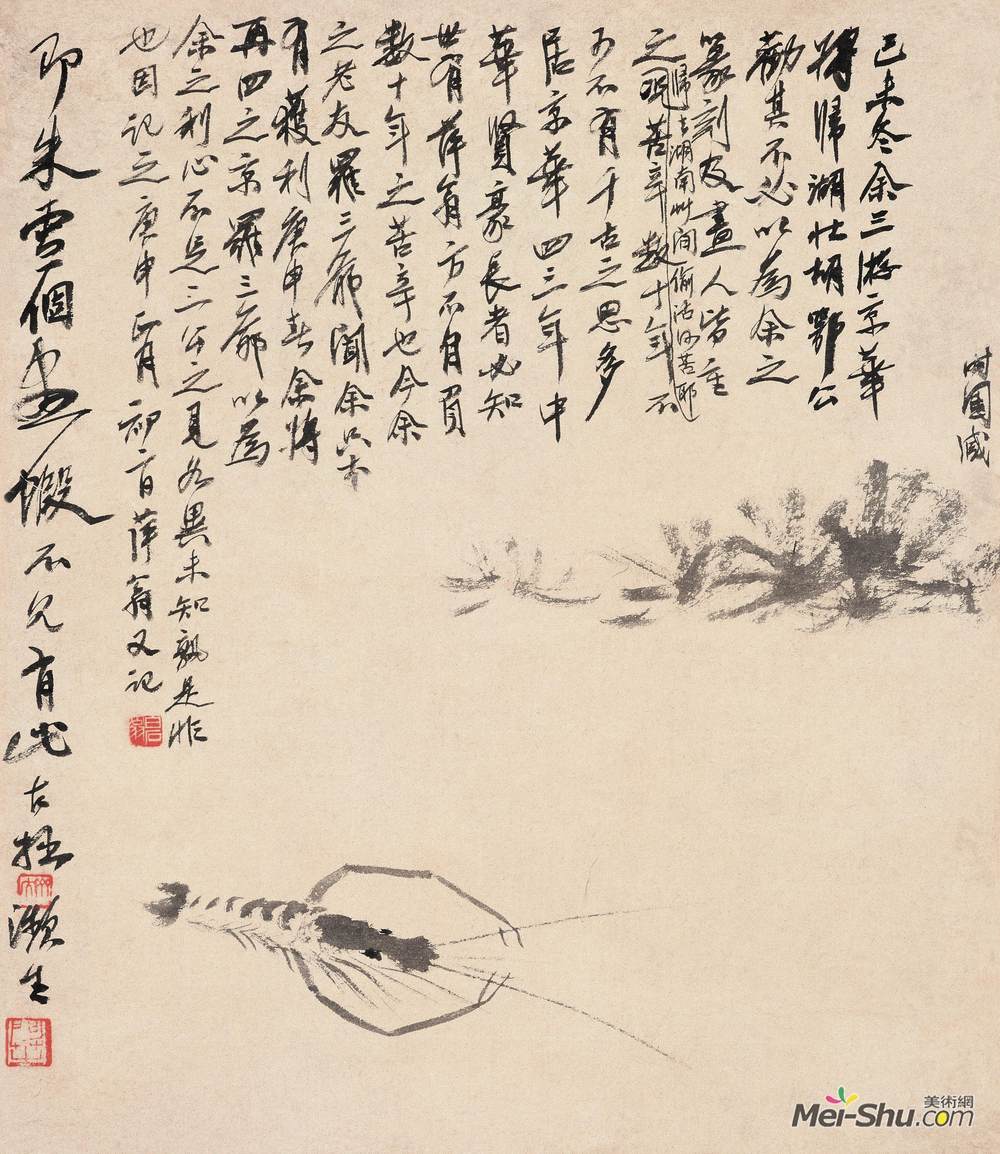 己未冬余三游京華
將歸湖北胡鄂公
勸其不必以為余之
篆刻及畫人皆重
歸去湖南草間偷活何苦耶
之況苦辛數十年不
可不有千古之思多
居京華四三年中
華賢豪長者必知
世有萍翁方不自負
數十年之苦辛也今余
之老友羅三爺聞余只求
有獲利庚申春余將
再四之京羅三爺以為
余之利心不忘二公之見各異未知孰是非
也因記之庚申正月初萍翁又記
即朱雪個畫蝦不見有此古拙瀕生
美術網
Mei-Shu.com